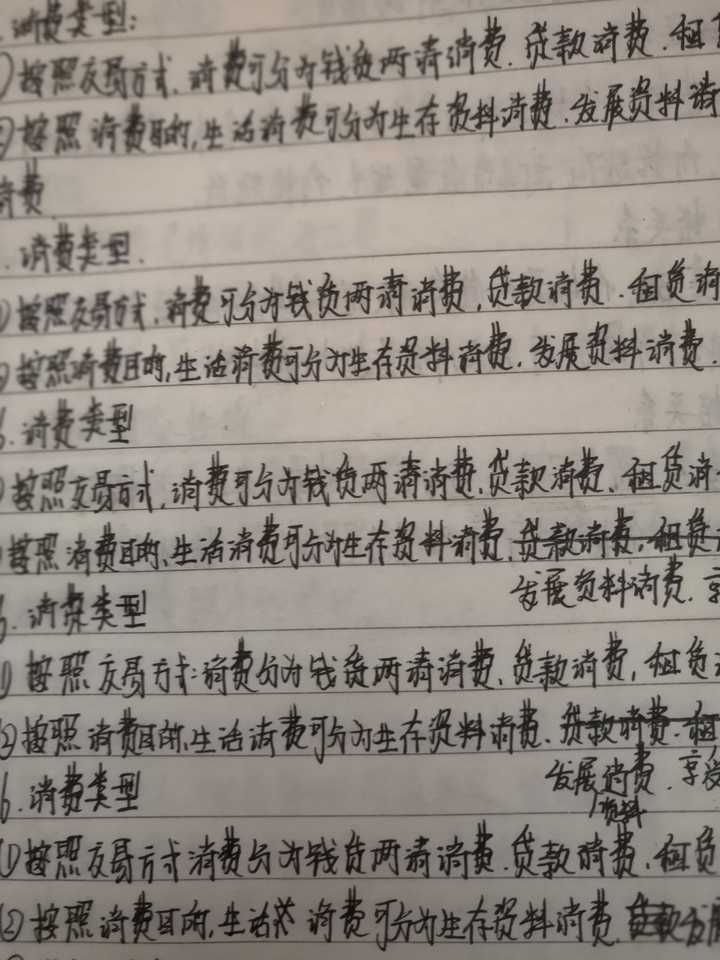 消费类型:
①按照交易方式,消费可分为钱货两清消费、贷款消费、租
②按照消费目的,生活消费可分为生存资料消费、发展资料消
消费
消费类型.
①按照交易方式,消费可分为钱货两清消费,贷款消费、租赁消
②按照消费目的,生活消费可分为生存资料消费、发展资料消费、
6.消费类型
①按照交易方式,消费可分为钱货两清消费、贷款消费、租赁消
②按照消费目的、生活消费可分为生存资料消费、贷款消费,租赁
发展资料消费、享
6.消费类型
(1)按照交易方式:消费分为钱货两清消费、贷款消费,租赁
(2)按照消费目的、生活消费可分为生存资料消费、贷款消费、租
发展消费、享受
资料
6.消费类型
(1)按照交易方式消费分为钱货两清消费、贷款消费、租赁
(2)按照消费目的,生活 消费可分为生存资料消费、发展